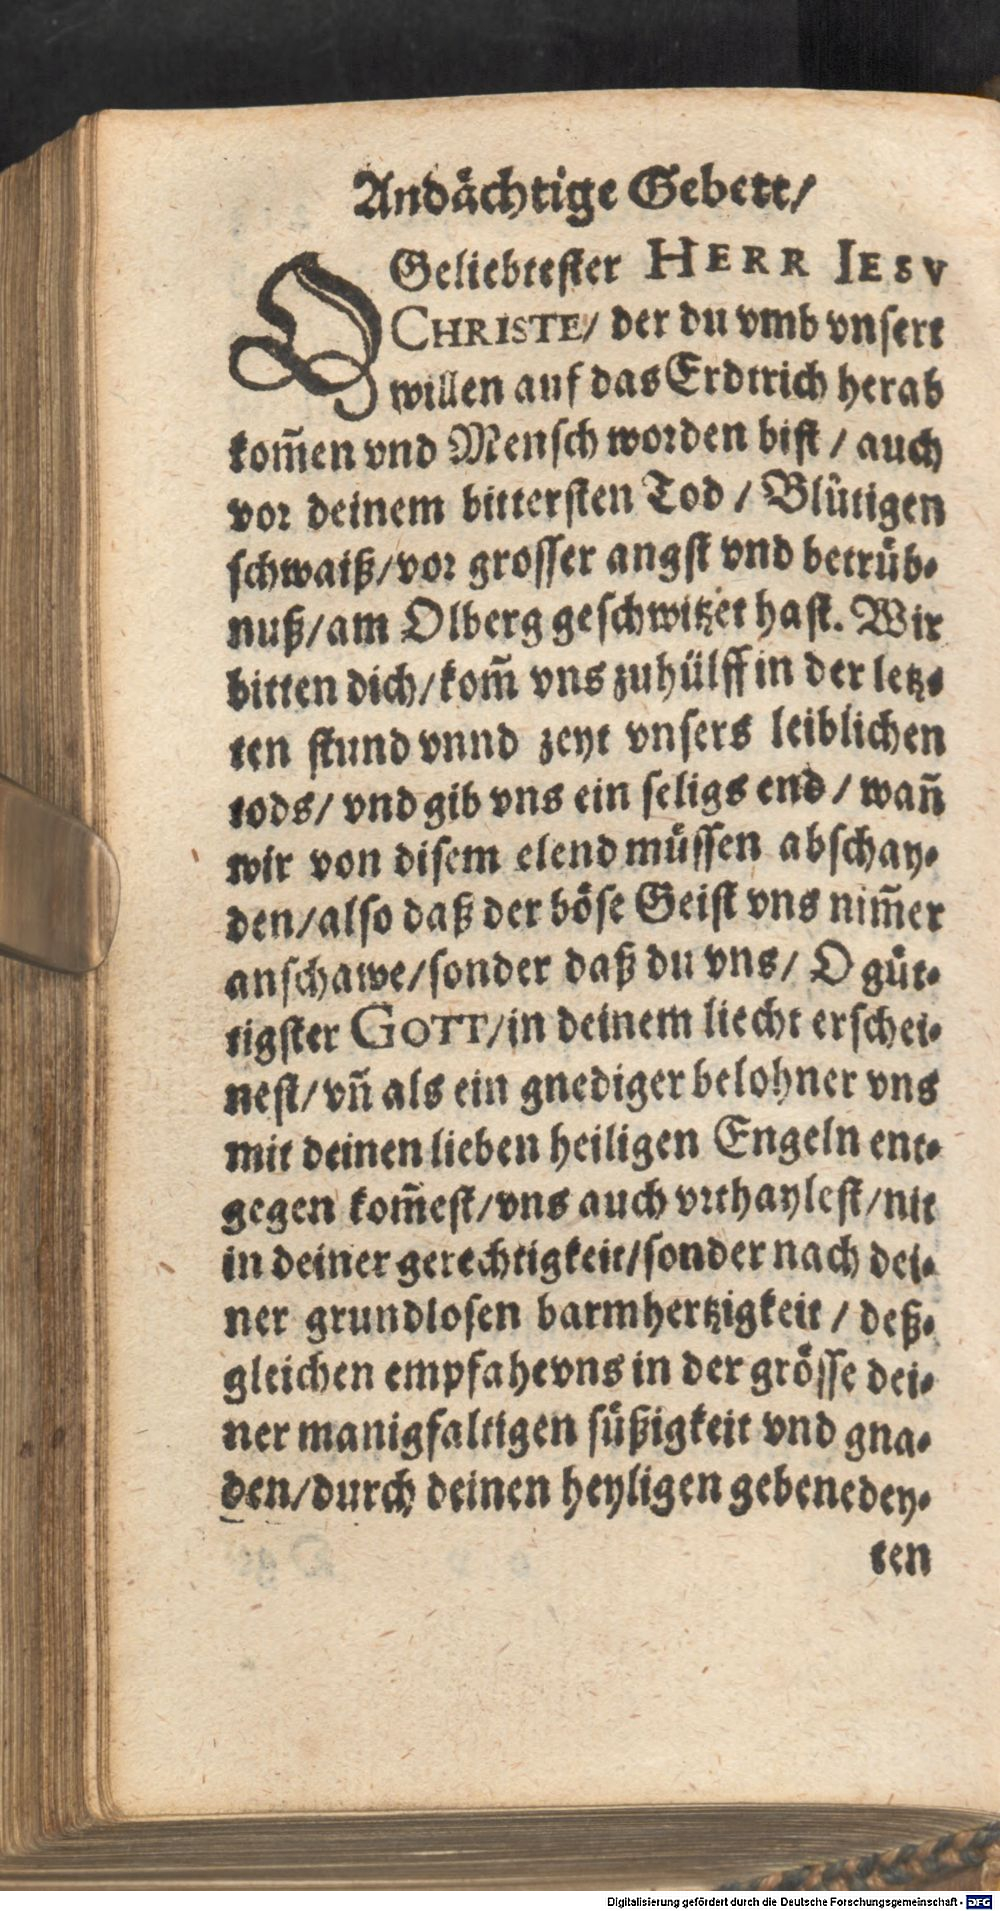 Andächtige Gebett/
O Geliebtester HERR IESV
CHRISTE/ der du vmb vnsert
willen auf das Erdtrich herab
kom̃en vnd Mensch worden bist / auch
vor deinem bittersten Tod / Blůtigen
schwaiß/vor grosser angst vnd betrůb-
nuß/am Olberg geschwitzet hast. Wir
bitten dich/kom̃ vns zuhülff in der letz-
ten stund vnnd zeyt vnsers leiblichen
tods/ vnd gib vns ein seligs end / wañ
wir von disem elend müssen abschay-
den/also daß der böse Geist vns nim̃er
anschawe/sonder daß du vns/ O güt-
tigster GOTT/in deinem liecht erschei-
nest/vñ als ein gnediger belohner vns
mit deinen lieben heiligen Engeln ent-
gegen kom̃est/vns auch vrthaylest/nit
in deiner gerechtigkeit/sonder nach dei-
ner grundlosen barmhertzigkeit / deß-
gleichen empfahe vns in der grösse dei-
ner manigfaltigen süßigkeit vnd gna-
den/durch deinen heyligen gebenedey-
ten
Digitalisierung gefördert durch die Deutsche Forschungsgemeinschaft - DFG